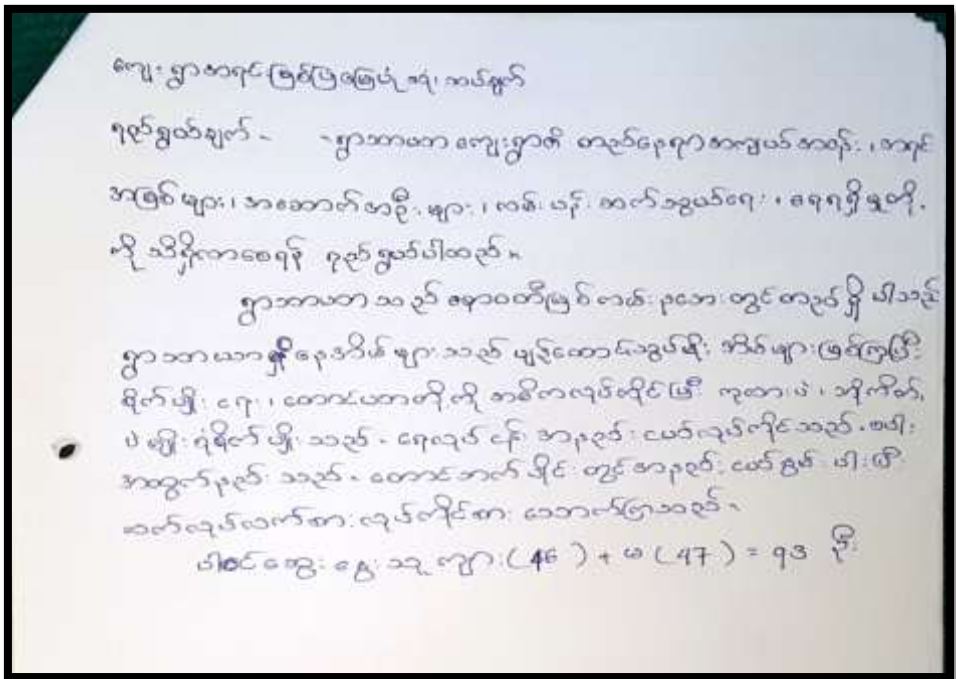 ကျေးရွာအရင်းအမြစ်ပြမြေပုံ ဒရုံးအယ်ချက်
ရည်ရွယ်ချက် - - ရွာသာယာကျေးရွာ၏ တည်နေရာအကျယ်အဝန်း ၊ အရင်း
အမြစ်များ ၊ အဆောက်အဦးများ ၊ လမ်းပန်းဆက်သွယ်ရေး ၊ ရေရရှိမှုတို့
ကို သိရှိလာစေရန် ရည်ရွယ်ပါသည်။
ရွာသာယာသည် ဧရာဝတီမြစ်ကမ်းဘေးတွင်တည်ရှိပါသည်
ရွာသာယာရှိနေအိမ်များသည် ပျဉ်ထောင်သွပ်မိုး အိမ်များဖြစ်ကြပြီး
စိုက်ပျိုးရေး ၊ တောင်ယာတို့ကို အဓိကလုပ်ကိုင်ပြီး ကုလားပဲ ၊
ပဲမျိုးစုံစိုက်ပျိုးသည် - ရေလုပ်ငန်း အနည်းငယ်လုပ်ကိုင်သည် - စပါး
အထွက်နည်းသည် - တောင်ဘက်ပိုင်းတွင်အနည်းငယ်
လုပ်ကိုင်စား သောက်ကြသည် -
ပါဝင်ဆွေးနွေးသူ ကျား ( 46 ) + မ ( 47 ) = 93 ဦး